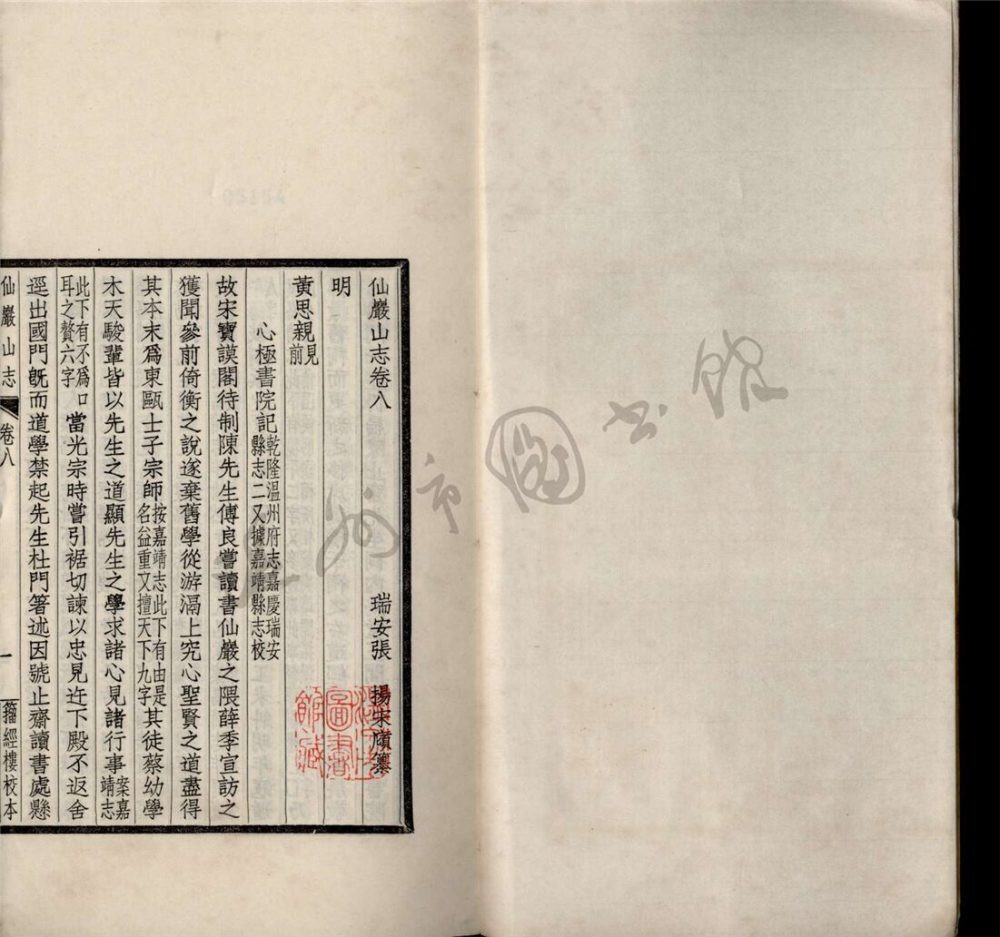 仙巖山志卷八
瑞安張 揚宋廎纂
明
黃思親見前
心極書院記乾隆溫州府志嘉慶瑞安縣志二又據嘉靖縣志校
故宋寶謨閣待制陳先生傅良嘗讀書仙巖之隈薛季宣訪之
獲聞參前倚衡之說遂棄舊學從游滆上究心聖賢之道盡得
其本末爲東甌士子宗師按嘉靖志此下有由是名益重又擅天下九字其徒蔡幼學
木天駿輩皆以先生之道顯先生之學求諸心見諸行事案嘉靖志
此下有不爲口耳之贅六字當光宗時嘗引裾切諫以忠見迕下殿不返舍
逕出國門旣而道學禁起先生杜門箸述因號止齋讀書處懸
仙巖山志 卷八 一 籀經樓校本
州市圖書館
圖書館藏